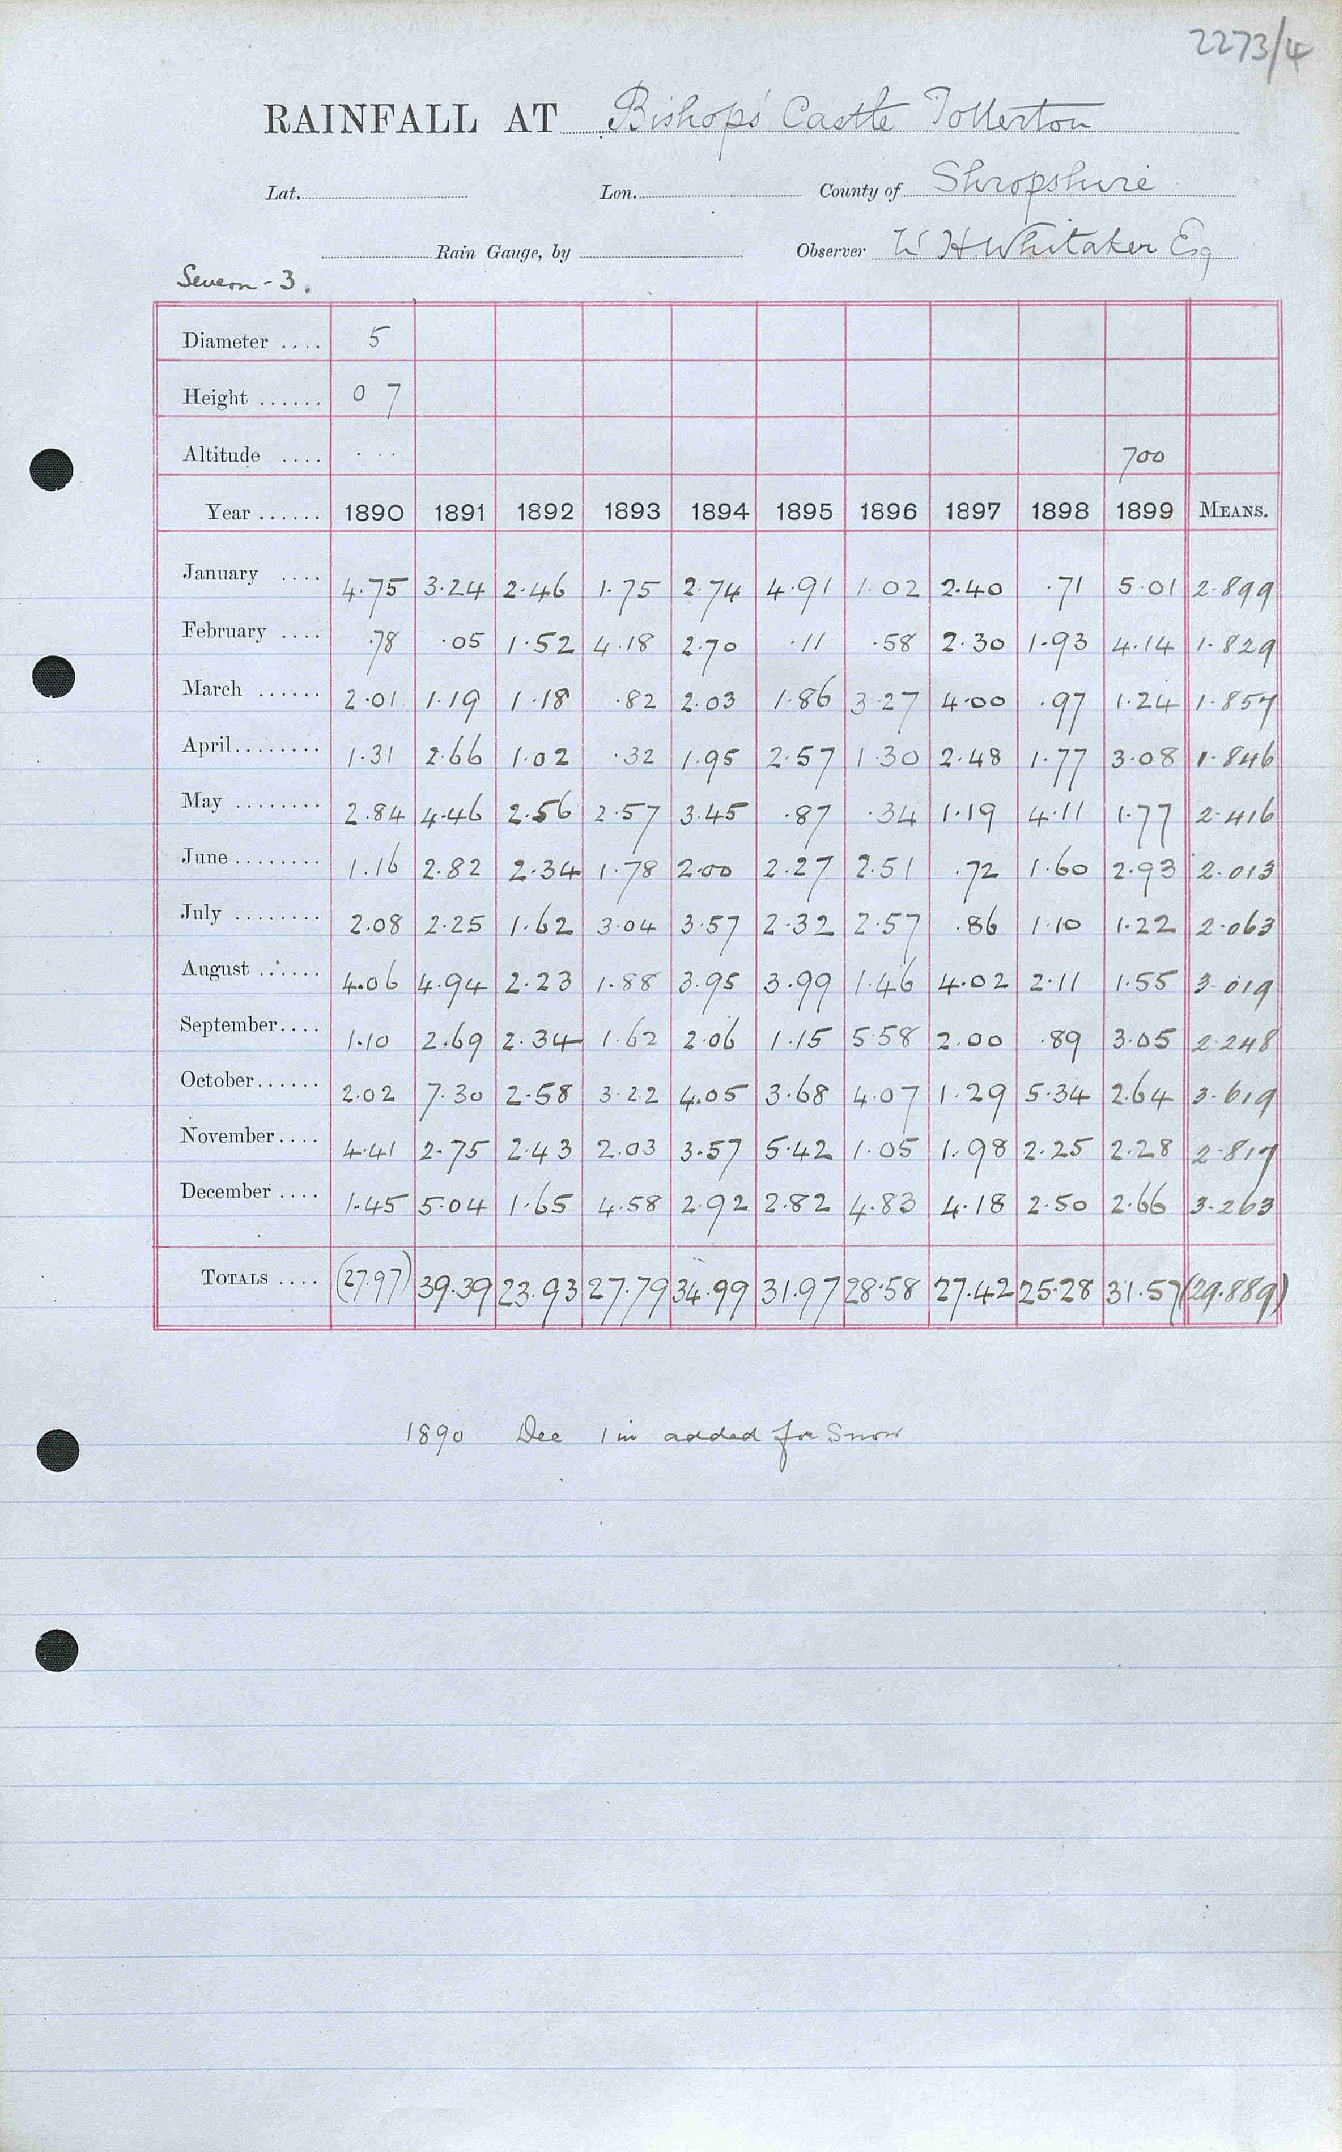 2273/4
RAINFALL AT Bishop's Castle Totterton
Lat. Lon. County of Shropshire
Rain Gauge, by Observer W H Whitaker Esq
Severn - 3.
Diameter .... 5
Height ...... 0 7
Altitude .... ... 700
Year ...... 1890 1891 1892 1893 1894 1895 1896 1897 1898 1899 MEANS.
January .... 4.75 3.24 2.46 1.75 2.74 4.91 1.02 2.40 .71 5.01 2.899
February .... .78 .05 1.52 4.18 2.70 .11 .58 2.30 1.93 4.14 1.829
March ...... 2.01 1.19 1.18 .82 2.03 1.86 3.27 4.00 .97 1.24 1.857
April........ 1.31 2.66 1.02 .32 1.95 2.57 1.30 2.48 1.77 3.08 1.846
May ........ 2.84 4.46 2.56 2.57 3.45 .87 .34 1.19 4.11 1.77 2.416
June ........ 1.16 2.82 2.34 1.78 2.00 2.27 2.51 .72 1.60 2.93 2.013
July ........ 2.08 2.25 1.62 3.04 3.57 2.32 2.57 .86 1.10 1.22 2.063
August ...... 4.06 4.94 2.23 1.88 3.95 3.99 1.46 4.02 2.11 1.55 3.019
September.... 1.10 2.69 2.34 1.62 2.06 1.15 5.58 2.00 .89 3.05 2.248
October...... 2.02 7.30 2.58 3.22 4.05 3.68 4.07 1.29 5.34 2.64 3.619
November.... 4.41 2.75 2.43 2.03 3.57 5.42 1.05 1.98 2.25 2.28 2.817
December .... 1.45 5.04 1.65 4.58 2.92 2.82 4.83 4.18 2.50 2.66 3.263
TOTALS .... (27.97) 39.39 23.93 27.79 34.99 31.97 28.58 27.42 25.28 31.57 (29.889)
1890 Dec 1 in added for Snow